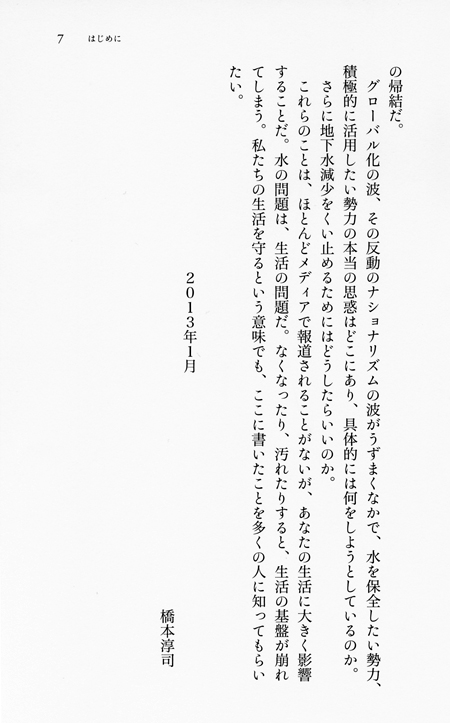 7 はじめに
の帰結だ。
　グローバル化の波、その反動のナショナリズムの波がうずまくなかで、水を保全したい勢力、
積極的に活用したい勢力の本当の思惑はどこにあり、具体的には何をしようとしているのか。
　さらに地下水減少をくい止めるためにはどうしたらいいのか。
　これらのことは、ほとんどメディアで報道されることがないが、あなたの生活に大きく影響
することだ。水の問題は、生活の問題だ。なくなったり、汚れたりすると、生活の基盤が崩れ
てしまう。私たちの生活を守るという意味でも、ここに書いたことを多くの人に知ってもらい
たい。
2013年1月
橋本淳司